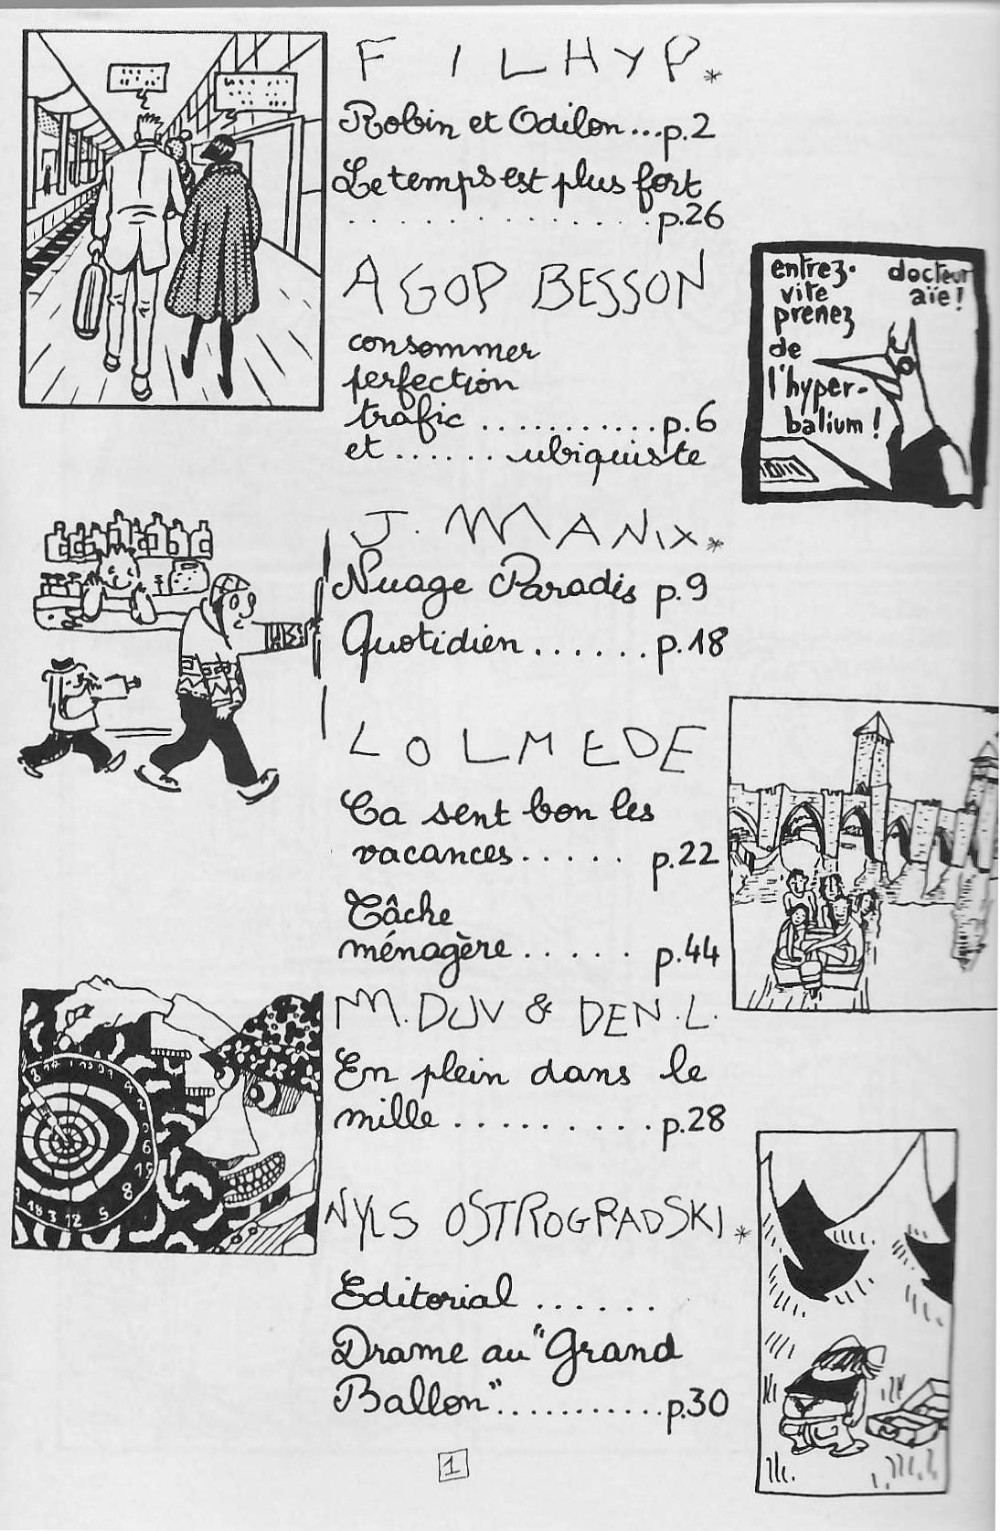 FILHYP.*
Robin et Odilon...p.2
Le temps est plus fort
..............p.26
AGOP BESSON
consommer
perfection
trafic ...........p.6
et.......ubiquiste
entrez.
vite
prenez
de
l'hyper-
balium !
docteur
aïe !
J. MANIX.*
Nuage Paradis p.9
Quotidien......p.18
LOLMEDE
Ca sent bon les
vacances..... p.22
Tâche
ménagère..... p.44
M. DUV & DEN.L.
En plein dans le
mille..........p.28
NYLS OSTROGRADSKI.*
Editorial ......
Drame au "Grand
Ballon"...........p.30
1